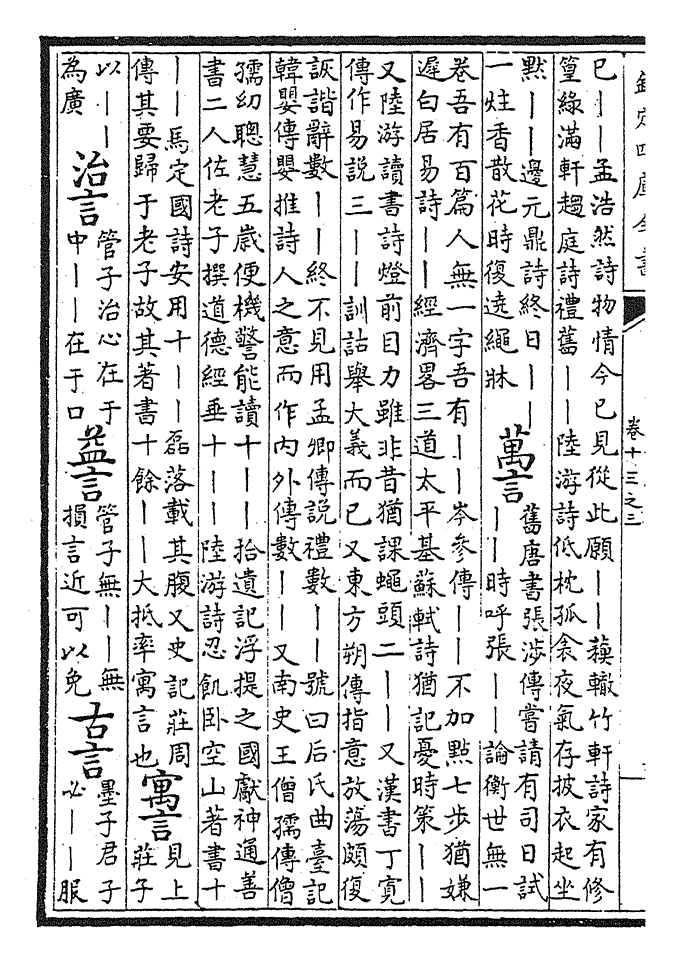 欽定四庫全書
卷十三之三
已丨丨孟浩然詩物情今已見從此願丨丨蘓轍竹軒詩家有修
篁綠滿軒趨庭詩禮舊丨丨陸游詩低枕孤衾夜氣存披衣起坐
默丨丨邊元鼎詩終日丨丨
一炷香散花時復遶繩牀
萬言
舊唐書張涉傳嘗請有司日試
丨丨時呼張丨丨論衡世無一
卷吾有百篇人無一字吾有丨丨岑參傳丨丨不加點七步猶嫌
遲白居易詩丨丨經濟畧三道太平基蘇軾詩猶記憂時策丨丨
又陸游讀書詩燈前目力雖非昔猶課蠅頭二丨丨又漢書丁寛
傳作易說三丨丨訓詁舉大義而已又東方朔傳指意放蕩頗復
詼諧辭數丨丨終不見用孟卿傳說禮數丨丨號曰后氏曲臺記
韓嬰傳嬰推詩人之意而作內外傳數丨丨又南史王僧孺傳僧
孺幼聰慧五歲便機警能讀十丨丨拾遺記浮提之國獻神通善
書二人佐老子撰道德經垂十丨丨陸游詩忍飢卧空山著書十
丨丨馬定國詩安用十丨丨磊落載其腹又史記莊周
傳其要歸于老子故其著書十餘丨丨大抵率寓言也
寓言
見上
莊子
以丨丨
為廣
治言
管子治心在于
中丨丨在于口
益言
管子無丨丨無
損言近可以免
古言
墨子君子
必丨丨服